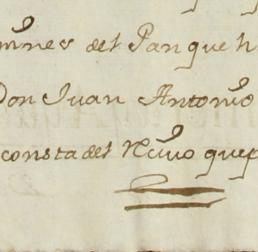 mnes del Pan que h
Don Juan Antonio
consta del Reciuo que p